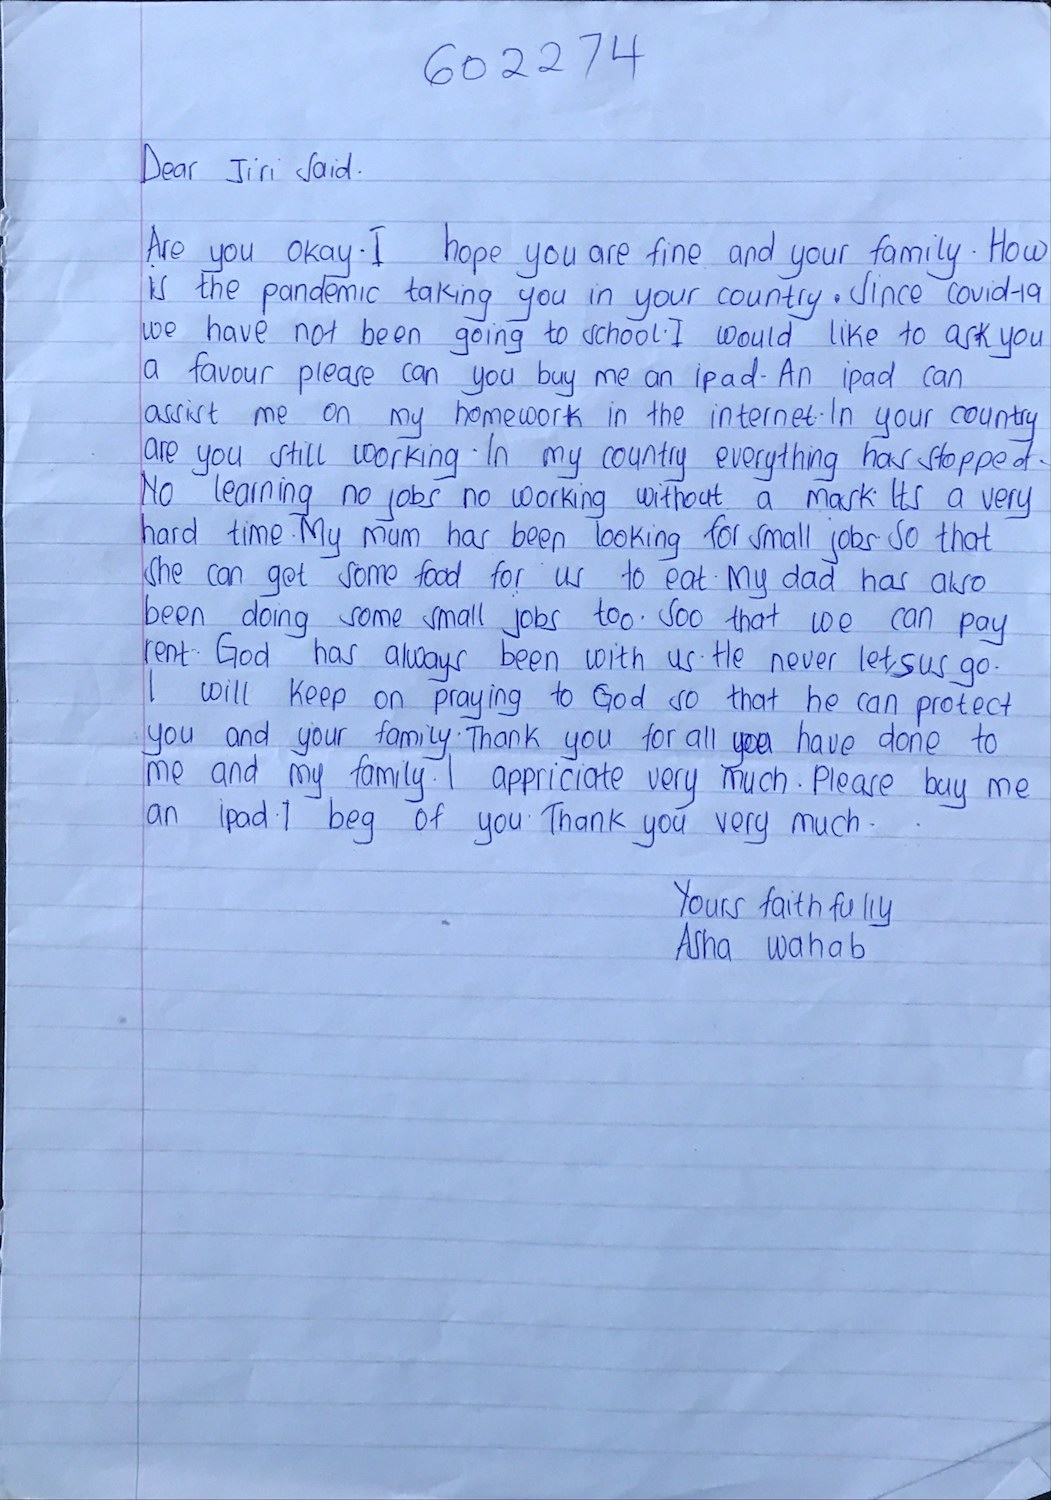 602274
Dear Jiri Said.
Are you okay. I hope you are fine and your family. How
is the pandemic taking you in your country. Since covid-19
we have not been going to school. I would like to ask you
a favour please can you buy me an ipad. An ipad can
assist me on my homework in the internet. In your country
are you still working. In my country everything has stopped.
No learning no jobs no working without a mask. Its a very
hard time. My mum has been looking for small jobs. So that
She can get some food for us to eat. My dad has also
been doing some small jobs too. Soo that we can pay
rent. God has always been with us. He never lets us go.
I will keep on praying to God so that he can protect
you and your family. Thank you for all you have done to
me and my family. I appriciate very much. Please buy me
an ipad. I beg of you. Thank you very much.
Yours faithfully
Asha wahab